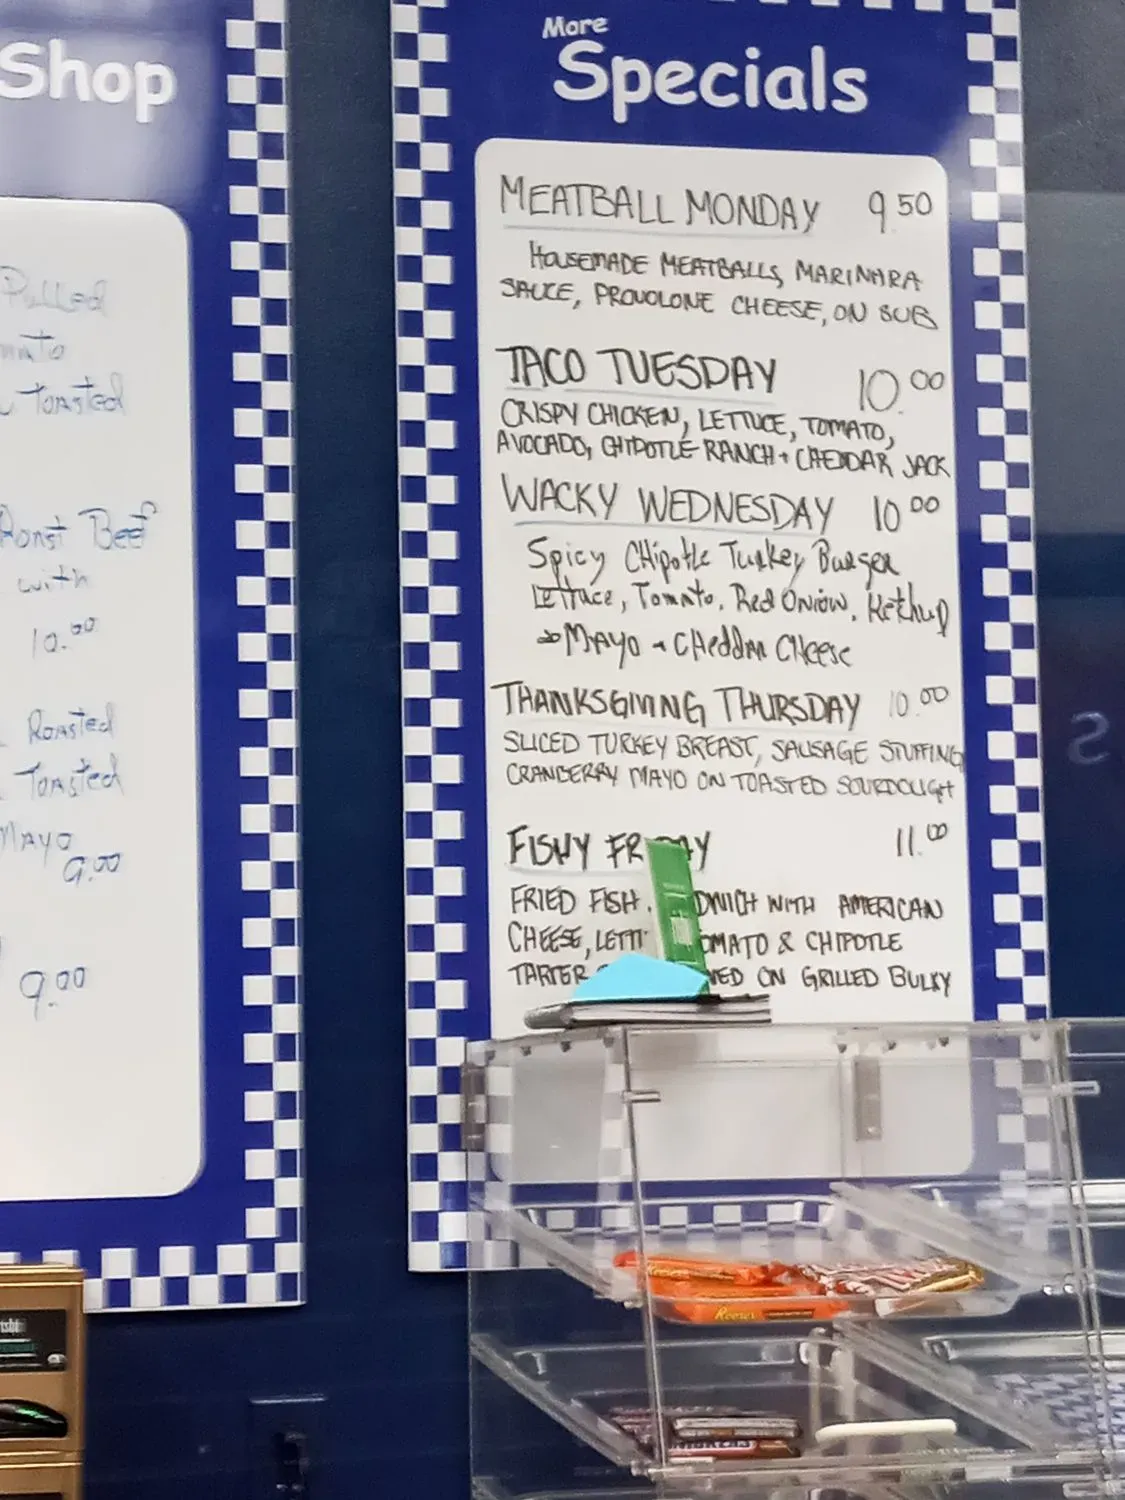 Shop
Pulled
Toasted
Roast Beef
with
10.00
Roasted
Toasted
Mayo
9.00
9.00
More
Specials
MEATBALL MONDAY 9.50
HOUSEMADE MEATBALLS, MARINARA
SAUCE, PROVOLONE CHEESE, ON SUB
TACO TUESDAY 10.00
CRISPY CHICKEN, LETTUCE, TOMATO,
AVOCADO, CHIPOTLE RANCH + CHEDDAR JACK
WACKY WEDNESDAY 10.00
Spicy CHipotle Turkey Burger
Lettuce, Tomato, Red Onion, Ketchup
MAYO + CHeddar CHeese
THANKSGIVING THURSDAY 10.00
SLICED TURKEY BREAST, SAUSAGE STUFFING
CRANBERRY MAYO ON TOASTED SOURDOUGH
FISHY FR AY 11.00
FRIED FISH DWICH WITH AMERICAN
CHEESE, LETT OMATO & CHIPOTLE
TARTER ON GRILLED BULKY
Reese's